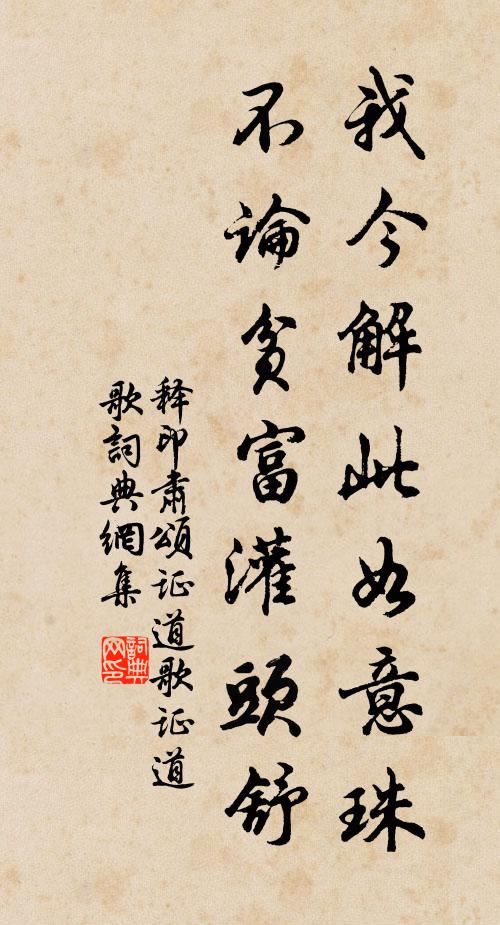 我今解此如意珠
不論貧富灌頭舒
释印肃頌证道歌证道
歌詞典網集
詞典网印